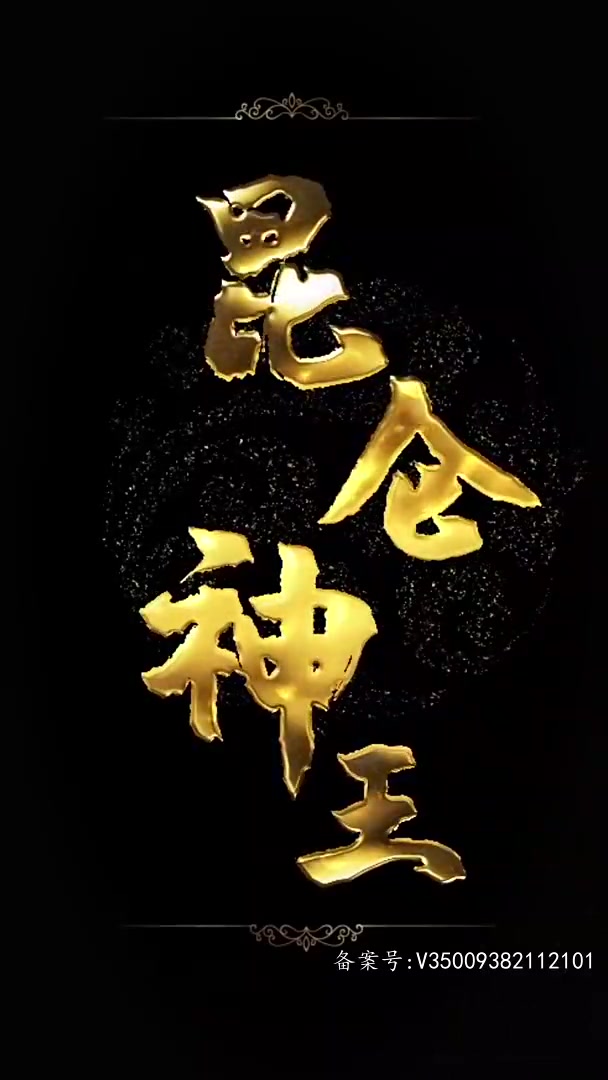 昆仓神王
备案号:V35009382112101